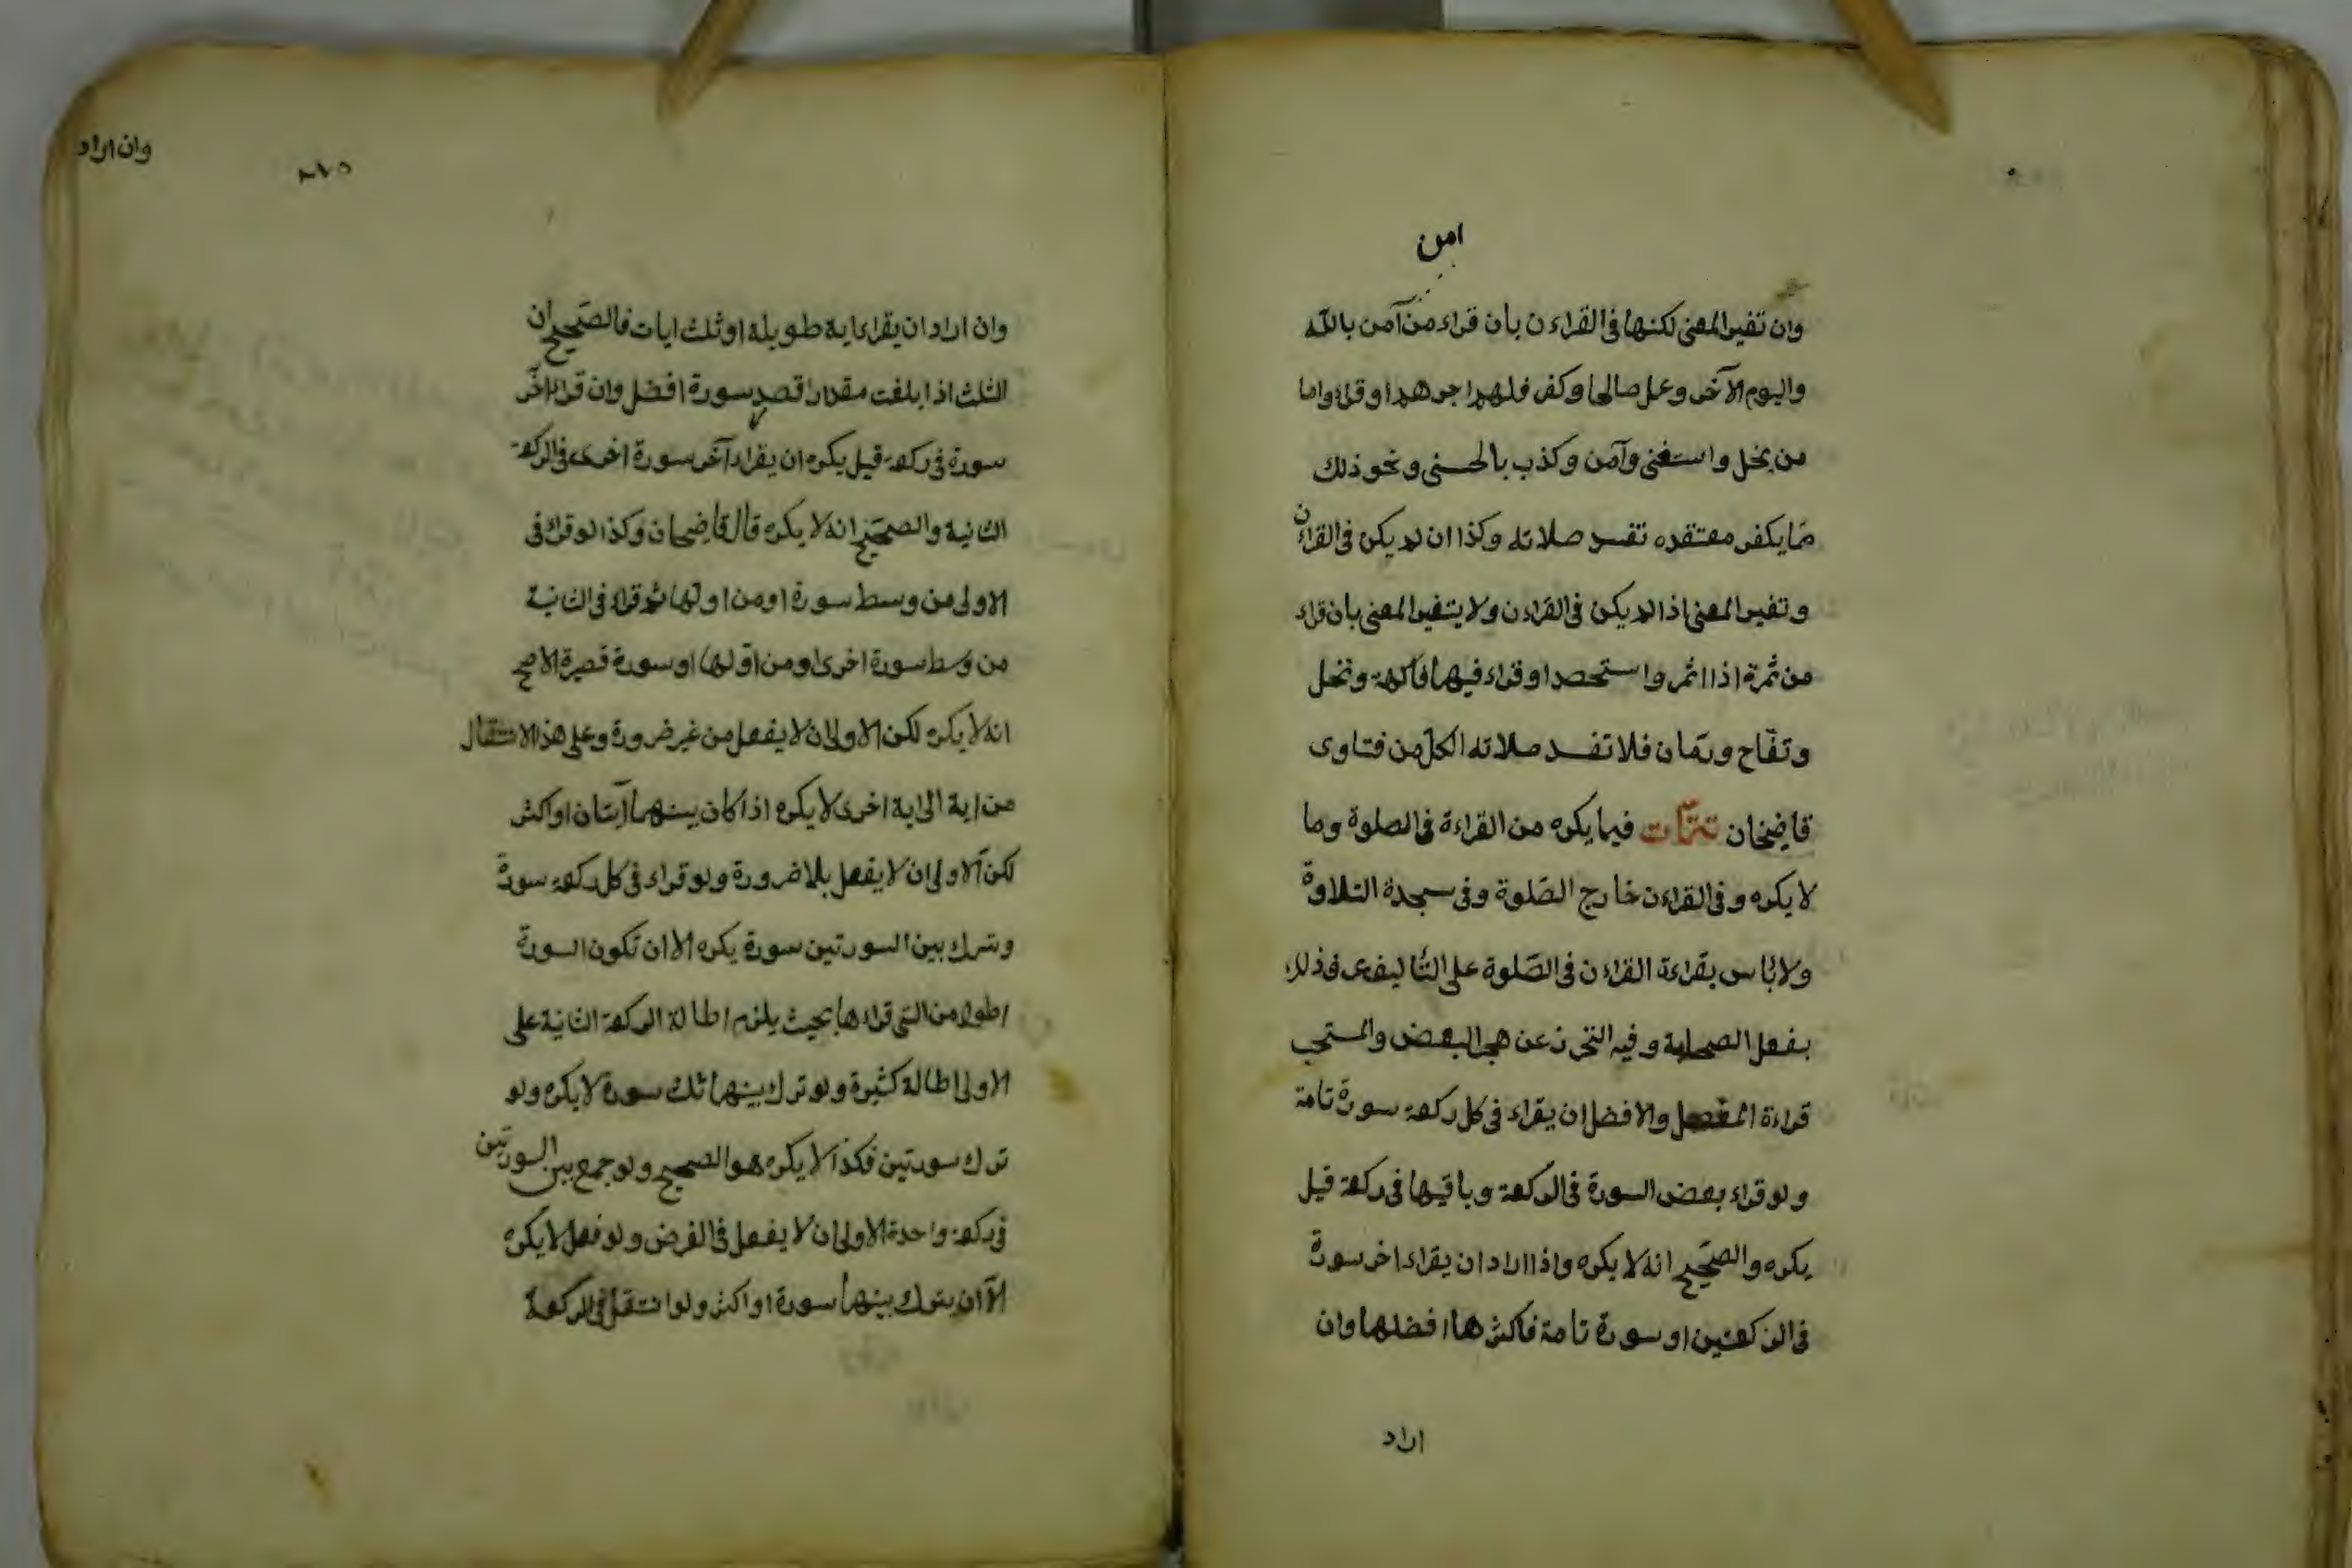 امن
وان تغير المعنى لكنها فى القراءن بان قراء من آمن بالله
واليوم الآخر وعمل صالحا وكفر فلهم اجرهم او قراء واما
من بخل واستغنى وآمن وكذب بالحسنى ونحو ذلك
مما يكفر معتقده تفسد صلاته وكذا ان لم يكن فى القراءن
وتغير المعنى اذا لم يكن فى القراءن ولا يتغير المعنى بان قراء
من ثمرة اذا اثمر واستحصد او قراء فيهما فاكهة ونخل
وتفّاح ورمّان فلا تفسد صلاته الكل من فتاوى
قاضيخان تتمّات فيما يكره من القراءة فى الصلوة وما
لا يكره وفى القراءن خارج الصّلوة وفى سجدة التلاوة
ولا باس بقراءة القراءن فى الصّلوة على التّاليف عرف ذلك
بفعل الصحابة وفيه التحرز عن هجر البعض والمستحب
قراءة المفصل والافضل ان يقراء فى كل ركعة سورة تامة
ولو قراء بعض السورة فى الركعة وباقيها فى ركعة قيل
يكره والصّحيح انه لا يكره واذا اراد ان يقراء اخر سورة
فى الركعتين او سورة تامة فاكثرها افضلها وان
اراد
وان اراد
وان اراد ان يقراء اية طويلة او ثلث ايات فالصّحيح ان
الثلث اذا بلغت مقدار اقصر سورة افضل وان قراء اخر
سورة فى ركعة قيل يكره ان يقراء آخر سورة اخرى فى الركعة
الثانية والصحّيح انه لا يكره قال قاضيخان وكذا لو قراء فى
الاولى من وسط سورة او من اولها ثم قراء فى الثانية
من وسط سورة اخرى او من اوّلها او سورة قصيرة الاصح
انه لا يكره لكن الاولى ان لا يفعل من غير ضرورة وعلى هذا الانتقال
من اية الى اية اخرى لا يكره اذا كان بينهما آيتان او اكثر
لكن الاولى ان لا يفعل بلا ضرورة ولو قراء فى كل ركعة سورة
وترك بين السورتين سورة يكره الا ان تكون السورة
اطول من التى قراءها بحيث يلزم اطالة الركعة الثانية على
الاولى اطالة كثيرة ولو ترك بينهما ثلث سورة لا يكره ولو
ترك سورتين فكذا لا يكره هو الصحيح ولو جمع بين السورتين
فى ركعة واحدة الاولى ان لا يفعل فى الفرض ولو فعل لا يكره
الّا ان يترك بينهما سورة او اكثر ولو انتقل فى الركعة